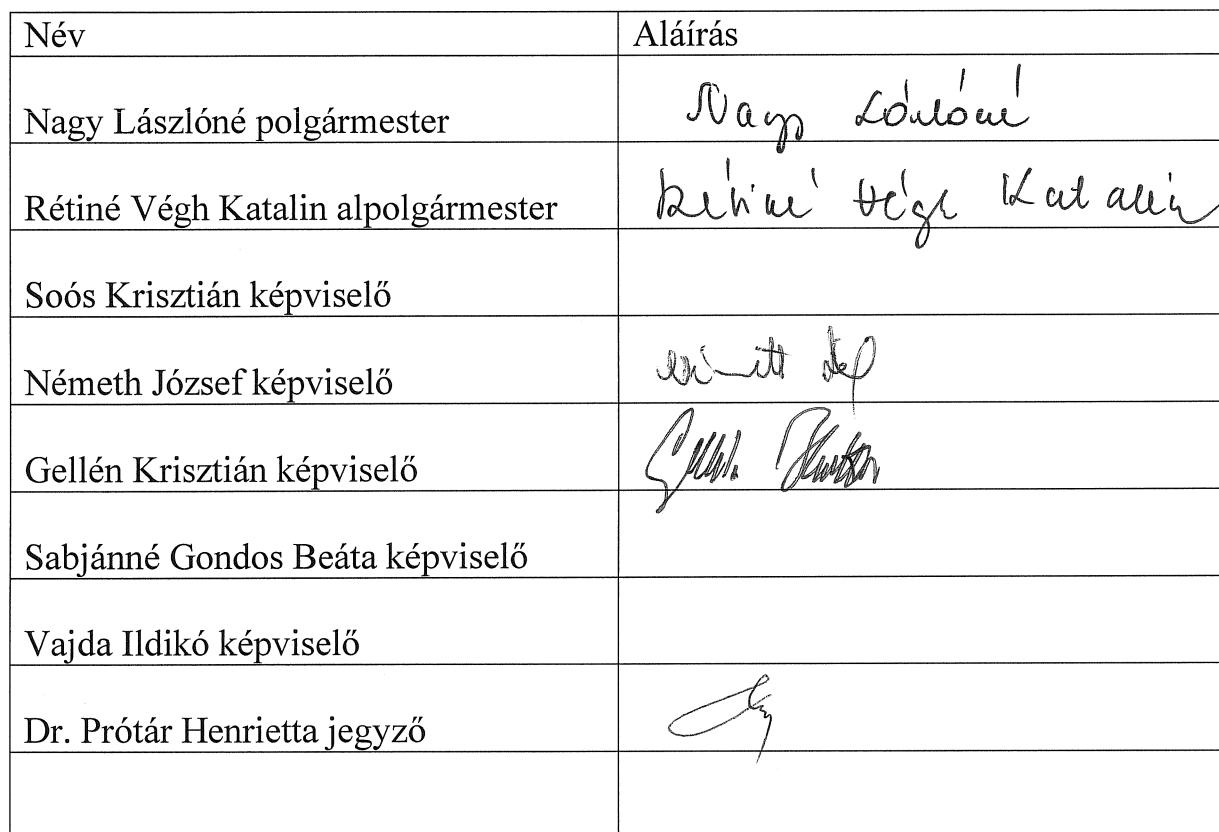 Név Aláírás
Nagy Lászlóné polgármester Nagy Lászlóné
Rétiné Végh Katalin alpolgármester Rétiné Végh Katalin
Soós Krisztián képviselő
Németh József képviselő
Gellén Krisztián képviselő
Sabjánné Gondos Beáta képviselő
Vajda Ildikó képviselő
Dr. Prótár Henrietta jegyző